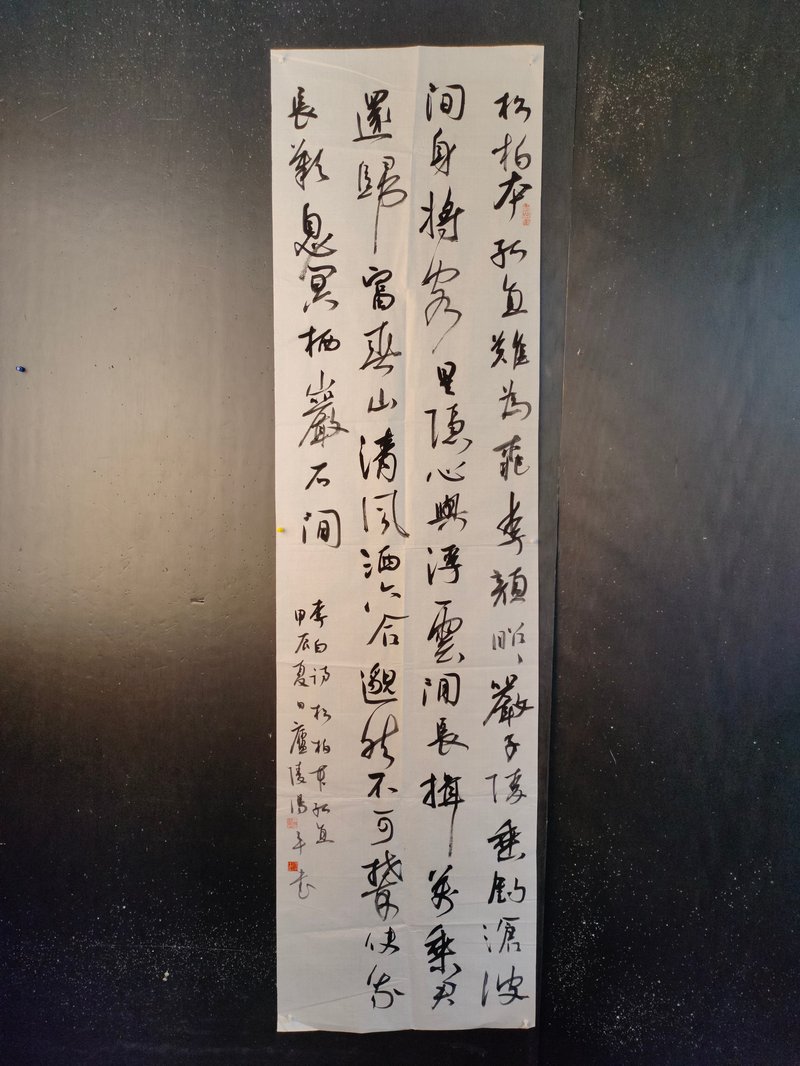 松柏本孤直難為桃李顏昭〻嚴子陵垂釣滄波
間身將客星隱心與浮雲閒長揖萬乘君
還歸富春山清風洒六合邈然不可攀使我
長歎息冥栖巖石間
李白詩松柏本孤直
甲辰夏日廬陵湯平書